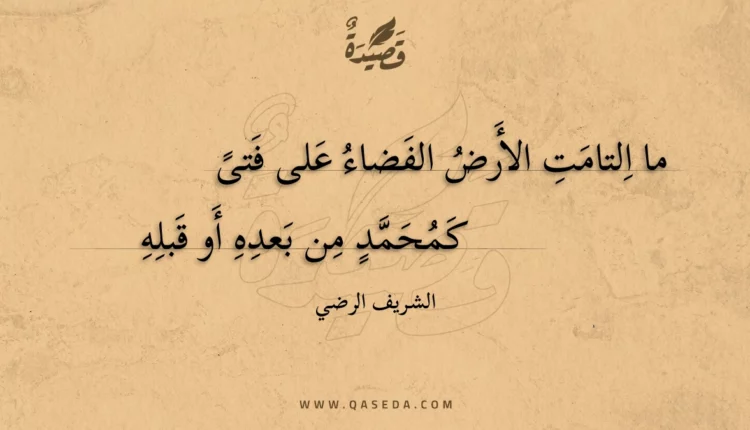 قَصِيْدَةٌ
ما اِلتامَتِ الأَرضُ الفَضاءُ عَلى فَتىً
كَمُحَمَّدٍ مِن بَعدِهِ أَو قَبلِهِ
الشريف الرضي
WWW.QASEDA.COM